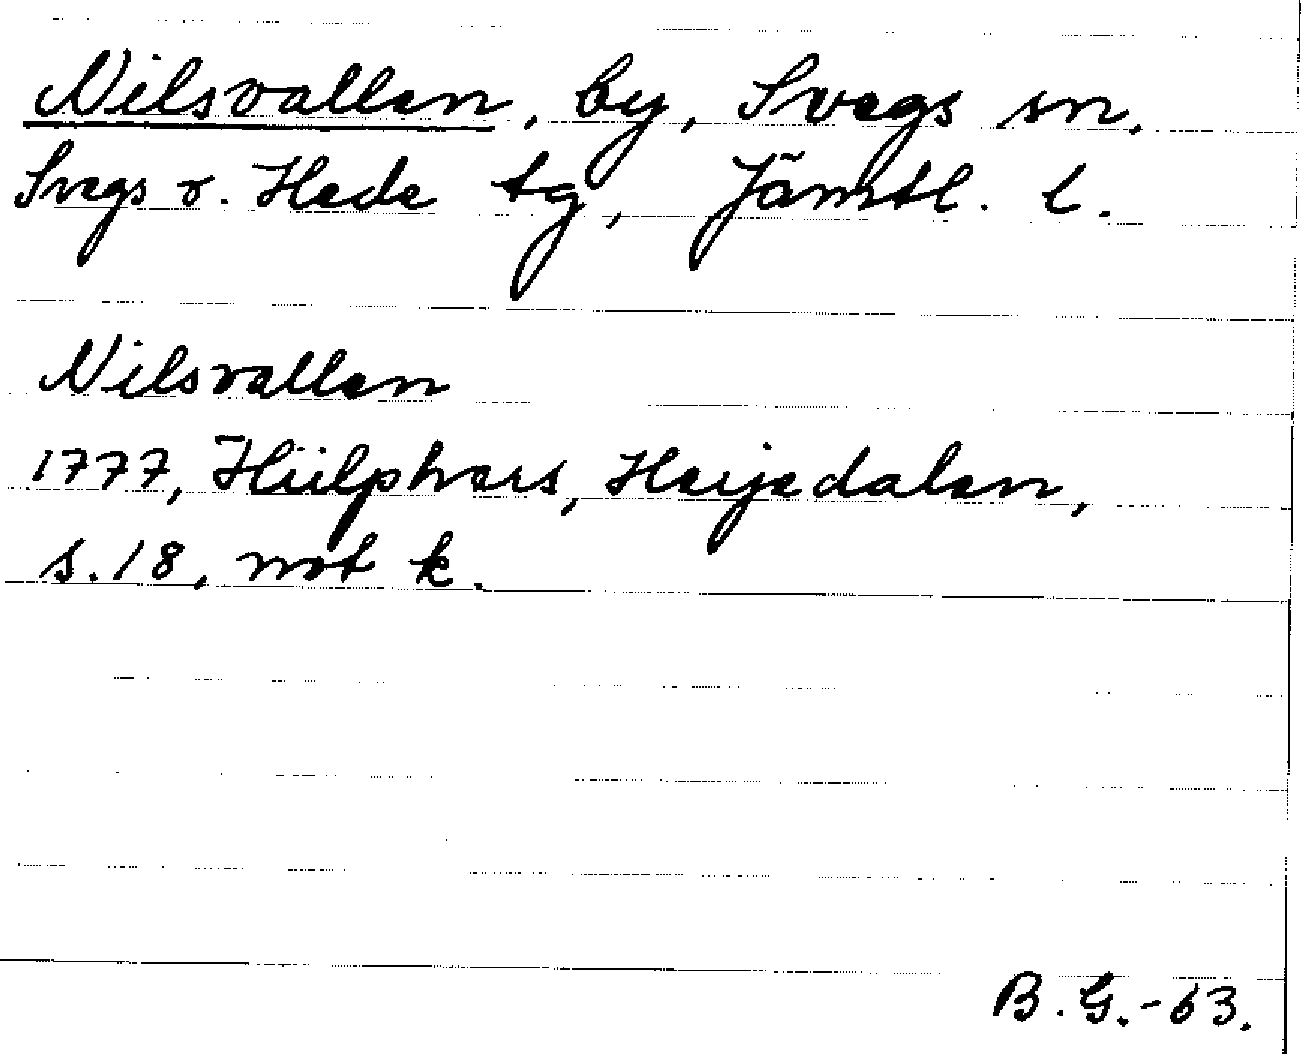 Nilsvallen, by, Svegs sn,
Svegs o. Hede tg, Jämtl. l.
Nilsvallen
1777, Hülphers, Herjedalen,
s.18, not k.
B.G.-63.